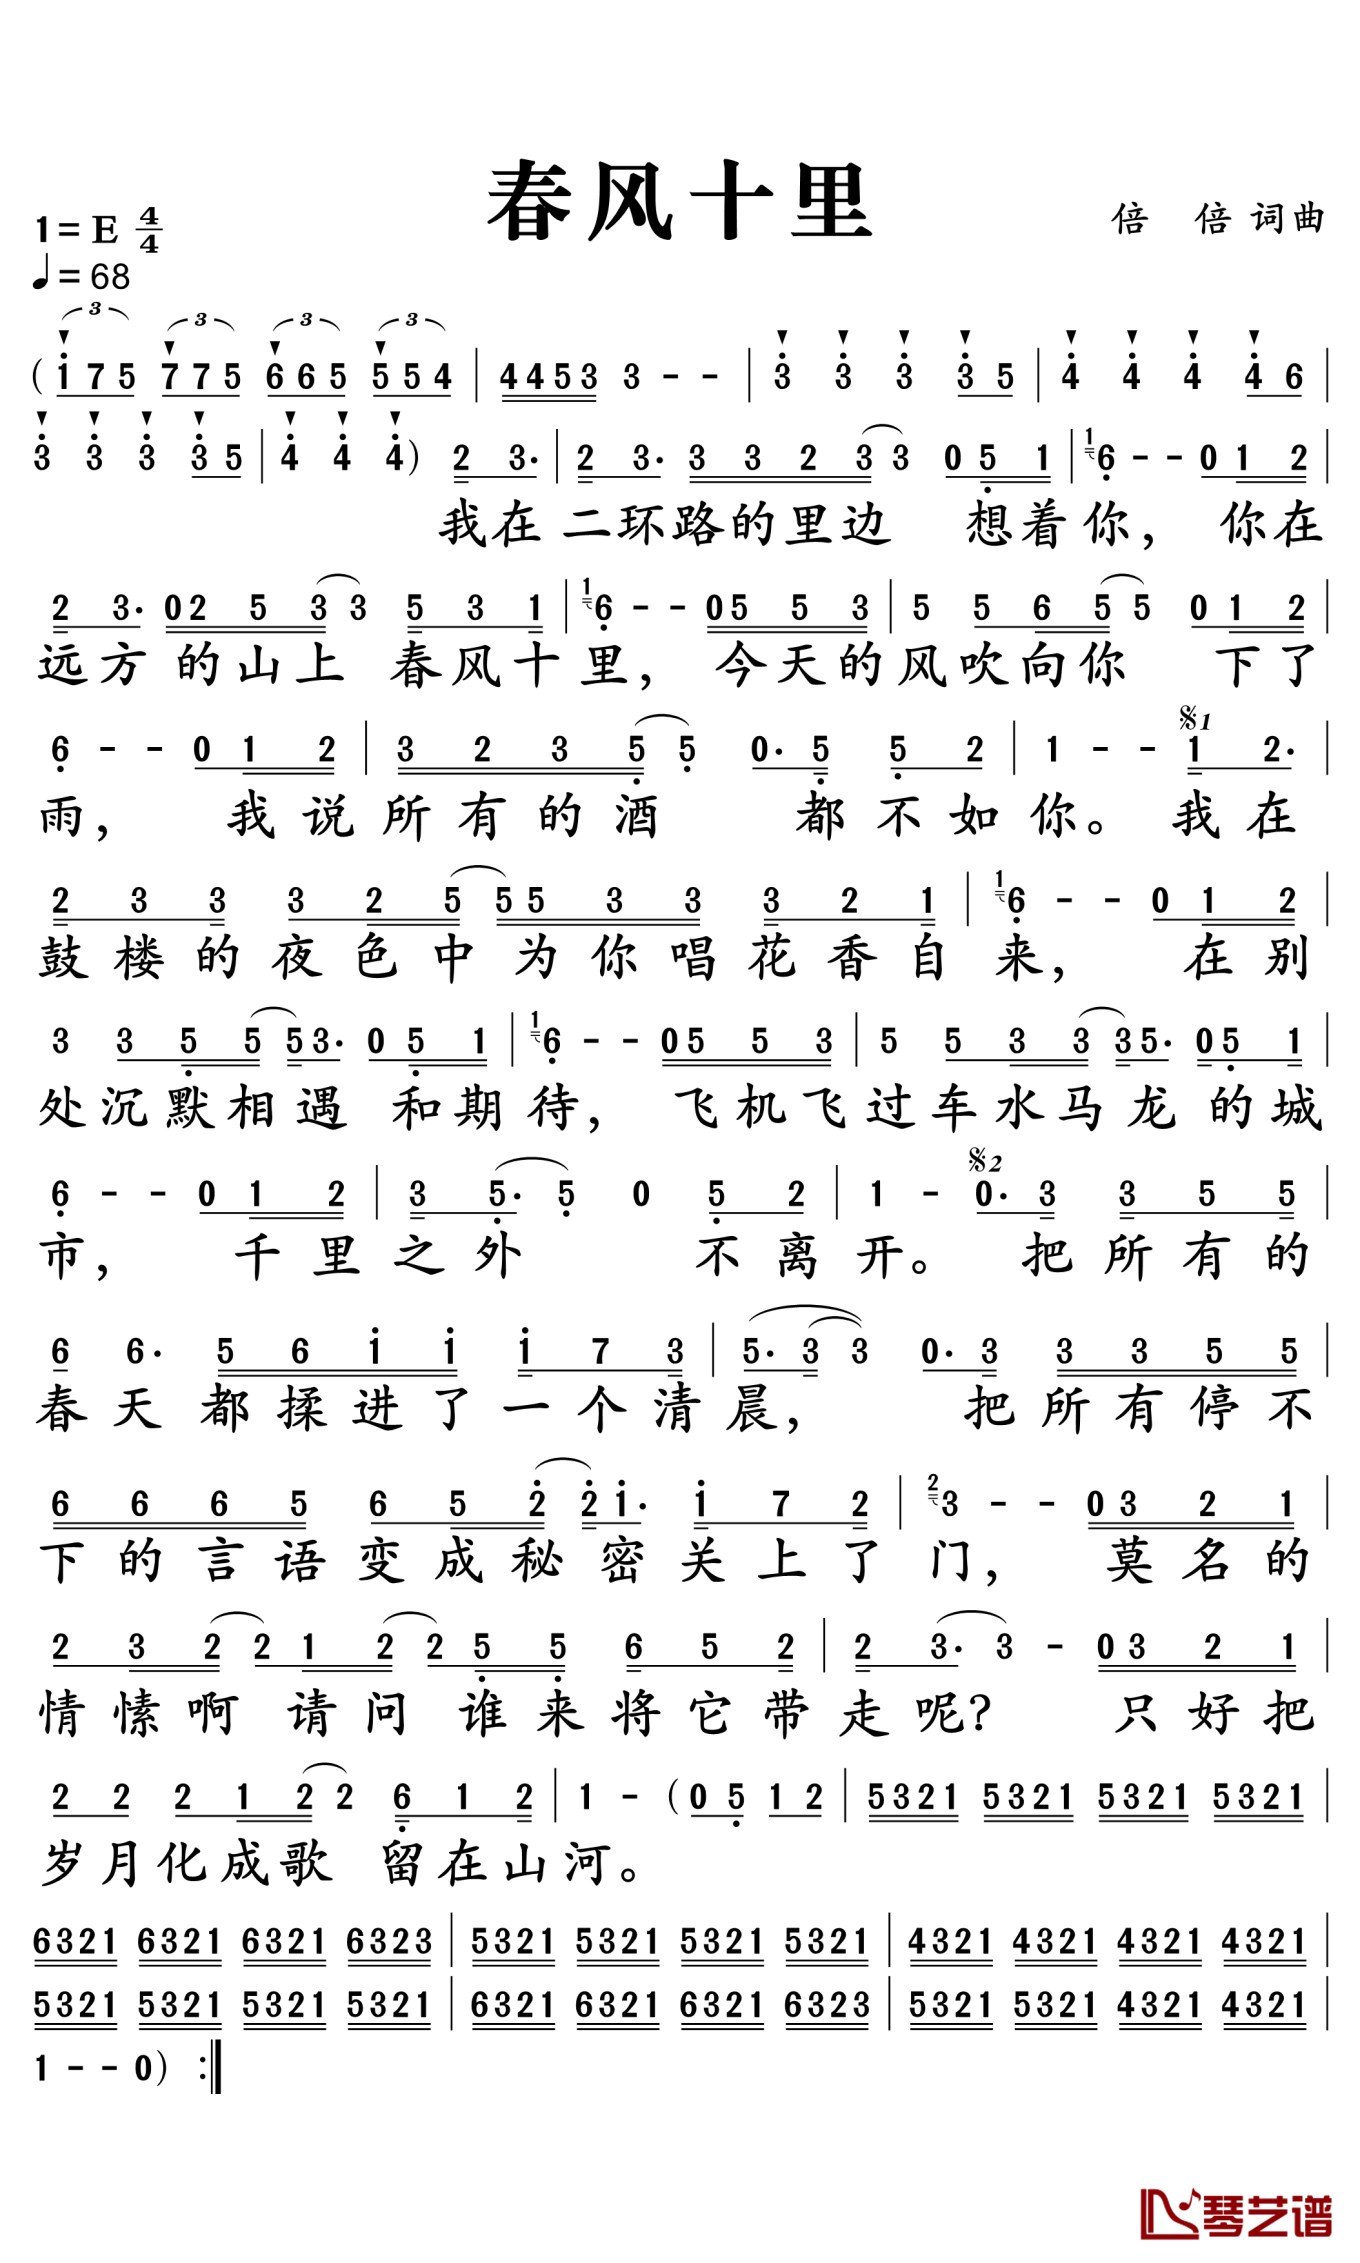 春风十里
1=E 4/4
倍 倍 词曲
♩=68
3 3 3 3
(1 7 5 7 7 5 6 6 5 5 5 4 | 4 4 5 3 3 - - | 3 3 3 3 5 | 4 4 4 4 6 |
3 3 3 3 5 | 4 4 4) 2 3. | 2 3. 3 3 2 3 3 0 5 1 | 1 6 - - 0 1 2 |
我在二环路的里边 想着你, 你在
2 3. 0 2 5 3 3 5 3 1 | 1 6 - - 0 5 5 3 | 5 5 6 5 5 0 1 2 |
远方的山上 春风十里, 今天的风吹向你 下了
𝄋1
6 - - 0 1 2 | 3 2 3 5 5 0. 5 5 2 | 1 - - 1 2. |
雨, 我说所有的酒 都不如你。我在
2 3 3 3 2 5 5 5 3 3 3 2 1 | 1 6 - - 0 1 2 |
鼓楼的夜色中为你唱花香自来, 在别
3 3 5 5 5 3. 0 5 1 | 1 6 - - 0 5 5 3 | 5 5 3 3 3 5. 0 5 1 |
处沉默相遇 和期待, 飞机飞过车水马龙的城
𝄋2
6 - - 0 1 2 | 3 5. 5 0 5 2 | 1 - 0. 3 3 5 5 |
市, 千里之外 不离开。 把所有的
6 6. 5 6 1 1 1 7 3 | 5. 3 3 0. 3 3 3 5 5 |
春天都揉进了一个清晨, 把所有停不
6 6 6 5 6 5 2 2 1. 1 7 2 | 2 3 - - 0 3 2 1 |
下的言语变成秘密关上了门, 莫名的
2 3 2 2 1 2 2 5 5 6 5 2 | 2 3. 3 - 0 3 2 1 |
情愫啊 请问 谁来将它带走呢? 只好把
2 2 2 1 2 2 6 1 2 | 1 - (0 5 1 2 | 5321 5321 5321 5321 |
岁月化成歌 留在山河。
6321 6321 6321 6323 | 5321 5321 5321 5321 | 4321 4321 4321 4321 |
5321 5321 5321 5321 | 6321 6321 6321 6323 | 5321 5321 4321 4321 |
1 - - 0) :|
琴艺谱